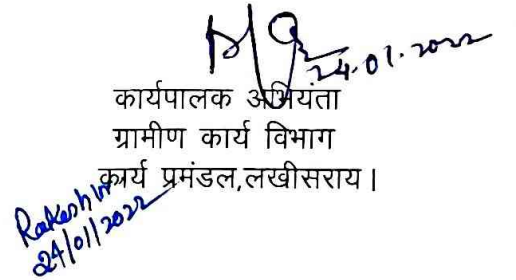 24.01.2022
कार्यपालक अभियंता
ग्रामीण कार्य विभाग
कार्य प्रमंडल,लखीसराय।
Rakesh
24/01/2022